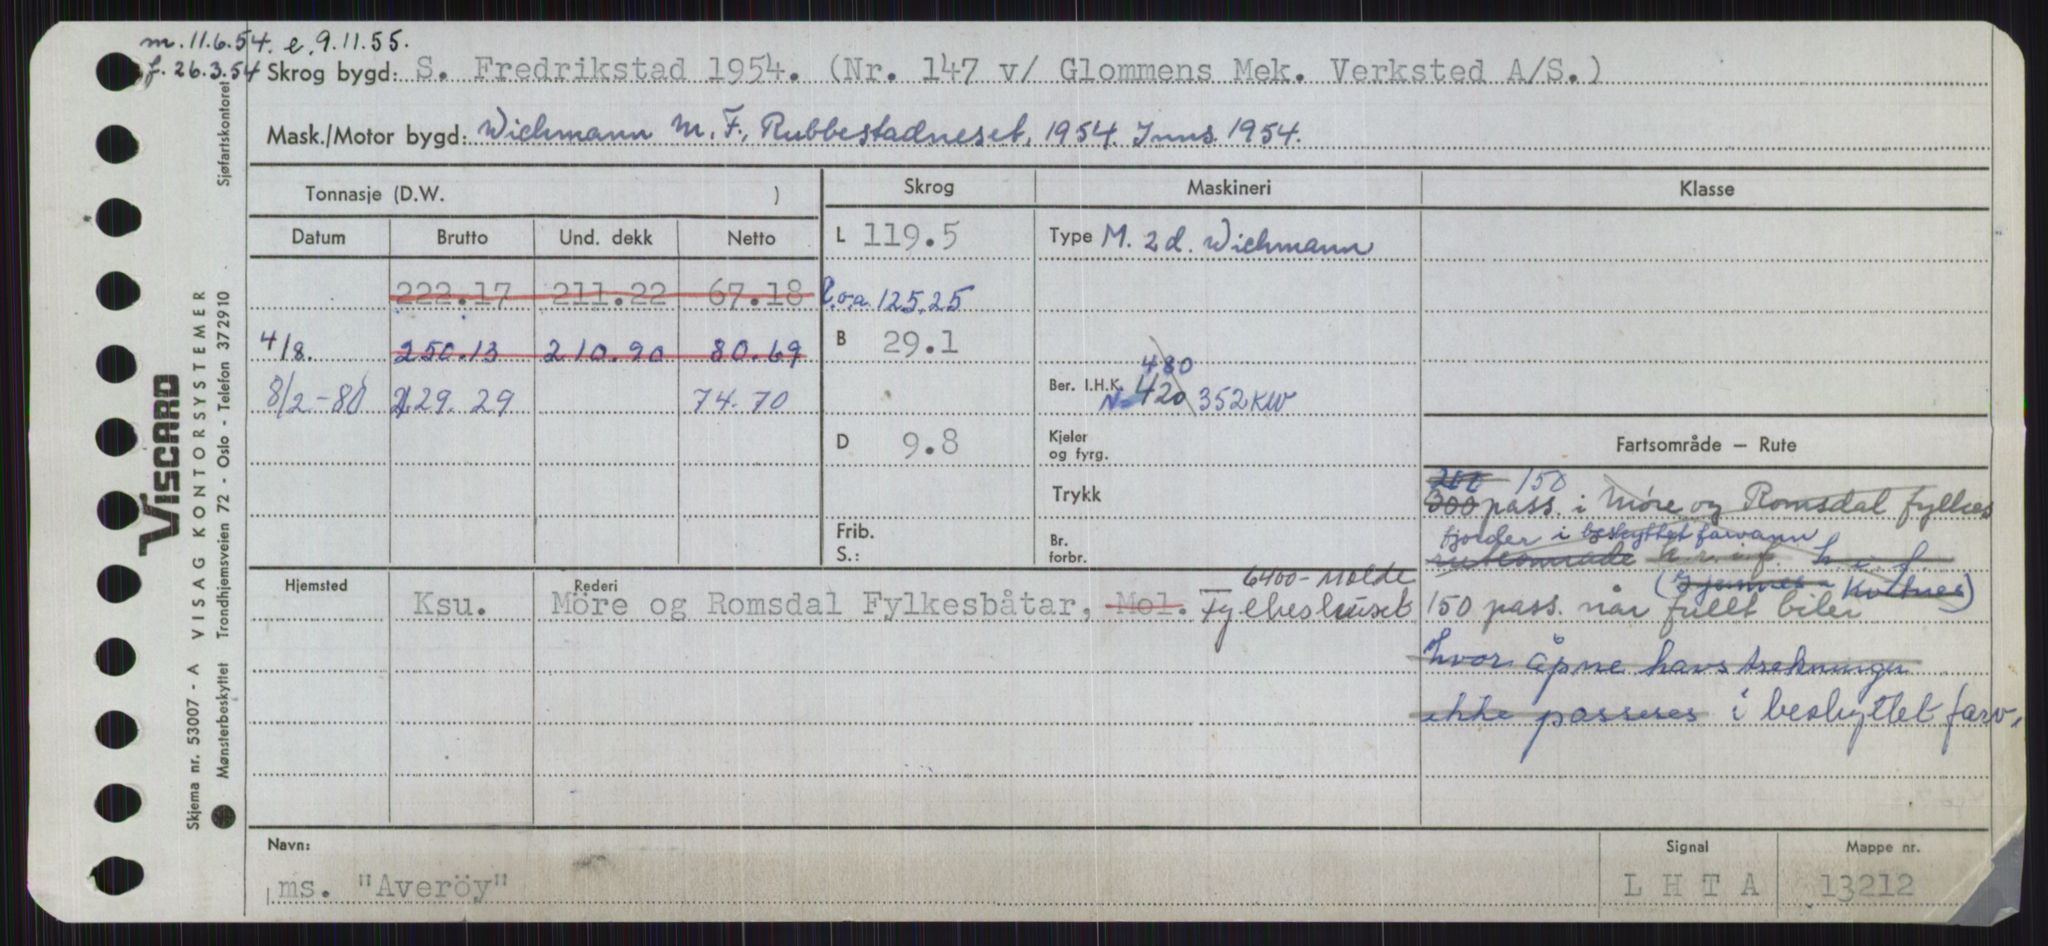 m. 11.6.54. e. 9.11.55.
f. 26.3.54 Skrog bygd: S. Fredrikstad 1954. (Nr. 147 v/ Glommens Mek. Verksted A/S.)
Mask./Motor bygd: Wichmann M. F., Rubbestadneset, 1954. Inns. 1954.
Tonnasje (D.W. )
Skrog
Maskineri
Klasse
Datum Brutto Und. dekk Netto
L 119.5
Type M. 2 d. Wichmann
222.17 211.22 67.18
l.o.a. 125,25
4/8. 250.13 210.90 80.69
B 29.1
480
8/2-80 229.29 74.70
Ber. I.H.K. N 420 352 KW
D 9.8
Kjeler
og fyrg.
Trykk
Frib.
S.:
Br.
forbr.
Fartsområde — Rute
200 150
300 pass. i Møre og Romsdal fylkes
fjorder i beskyttet farvann
ruteområde h.r.i.f. h.i.f.
(Kvitnes)
150 pass. når fullt biler
hvor åpne havstrekninger
ikke passeres i beskyttet farv.
Hjemsted Rederi
6400 - Molde
Ksu. Möre og Romsdal Fylkesbåtar, Mol. Fylkeshuset
Navn:
ms. "Averöy"
Signal
L H T A
Mappe nr.
13212
Sjøfartskontoret
VISCARD
VISAG KONTORSYSTEMER
Skjema nr. 53007 - A
Mønsterbeskyttet Trondhjemsveien 72 - Oslo - Telefon 372910